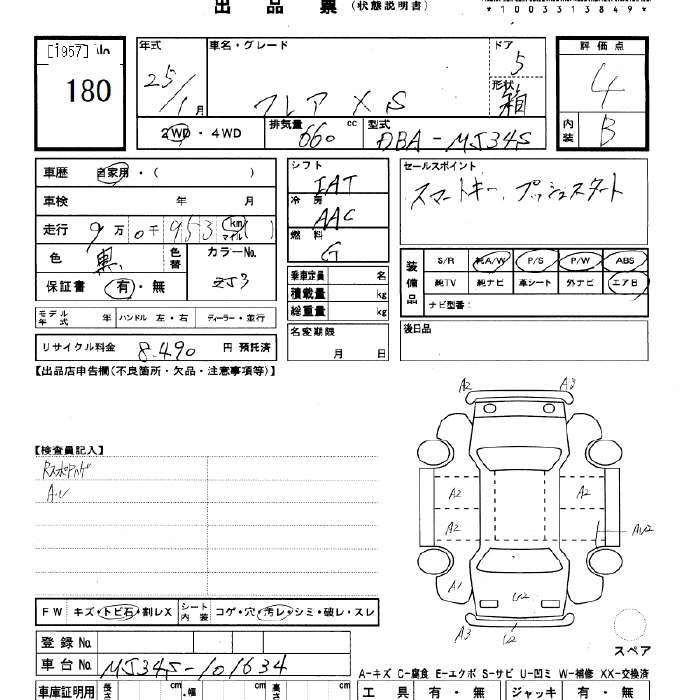 出 品 票 (状態説明書)
*1003313849*
[1957]
180
年式
25/1月
車名・グレード
フレア XS
ドア
5
形状
箱
評価点
4
内装
B
2WD・4WD
排気量
660 cc
型式
DBA-MJ34S
車歴 自家用・( )
車検 年 月
走行 9万0千953 (km マイル)
色 黒
色替
カラーNo.
ZJ3
保証書 有・無
モデル年式 年 ハンドル 左・右 ディーラー・並行
リサイクル料金 8,490 円 預託済
シフト
IAT
冷房
AAC
燃料
G
乗車定員 名
積載量 kg
総重量 kg
名変期限
月 日
セールスポイント
スマートキー、プッシュスタート
装備品
S/R 純A/W P/S P/W ABS
純TV 純ナビ 革シート 外ナビ エアB
ナビ型番:
後日品
【出品店申告欄(不良箇所・欠品・注意事項等)】
【検査員記入】
A・U
A2 A3
A2 A2
A2 AU2
A1 U2
A3 U2
スペア
FW キズ・トビ石・割レX シート内装 コゲ・穴・汚レ・シミ・破レ・スレ
登録No.
車台No. MJ34S-101634
A-キズ C-腐食 E-エクボ S-サビ U-凹ミ W-補修 XX-交換済
車庫証明用 長さ cm ・幅 cm 高さ cm
工具 有・無 ジャッキ 有・無